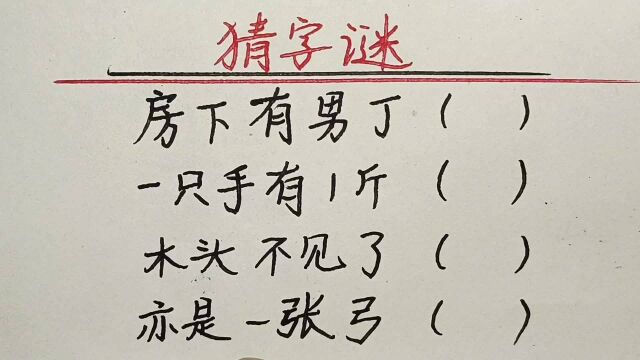 猜字谜
房下有男丁（ ）
一只手有1斤（ ）
木头不见了（ ）
亦是一张弓（ ）